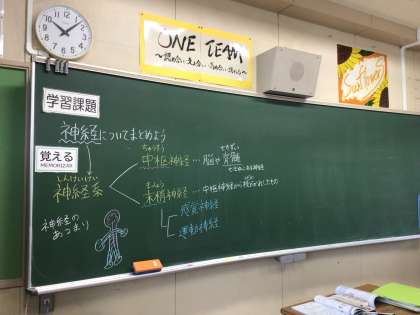 ONE TEAM
Sunflower
学習課題
神経についてまとめよう
覚える
MEMORIZER
しんけいけい
神経系
神経の
あつまり
ちゅうすう せきずい
中枢神経…脳や脊髄
せぼねにある神経
まっしょう
末梢神経…中枢神経から枝分かれしたもの
感覚神経
運動神経